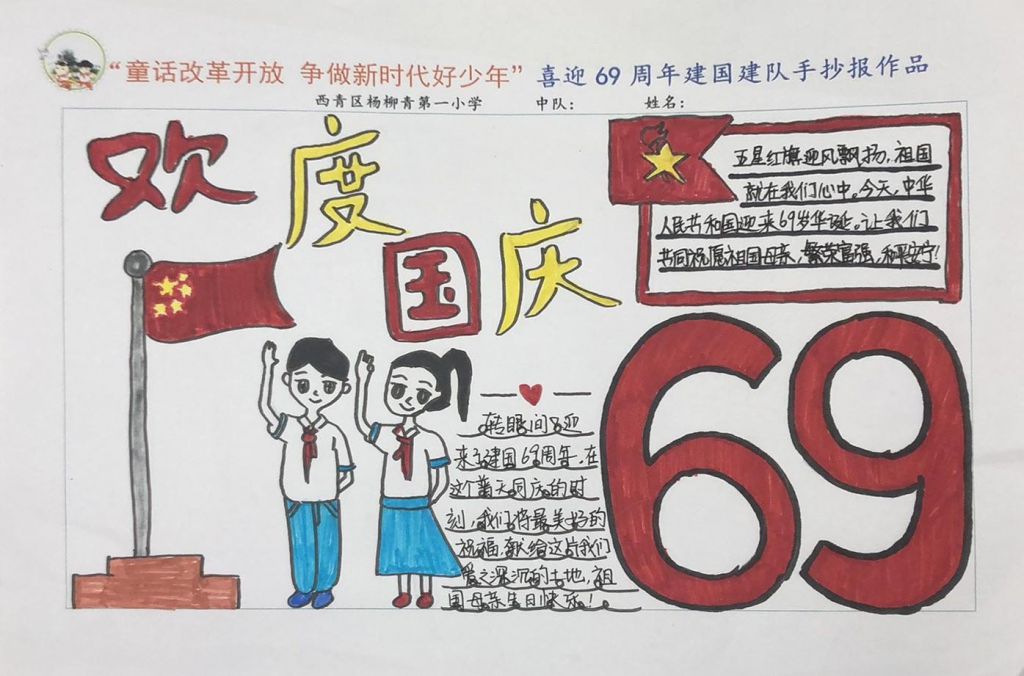 “童话改革开放 争做新时代好少年” 喜迎 69 周年建国建队手抄报作品
西青区杨柳青第一小学 中队： 姓名：
欢度
国庆
五星红旗迎风飘扬，祖国
就在我们心中。今天，中华
人民共和国迎来69岁华诞。让我们
共同祝愿祖国母亲，繁荣富强，和平安宁！
69
转眼间又迎
来了建国69周年，在
这个普天同庆的时
刻，我们将最美好的
祝福，献给这片我们
爱之深沉的土地，祖
国母亲生日快乐！